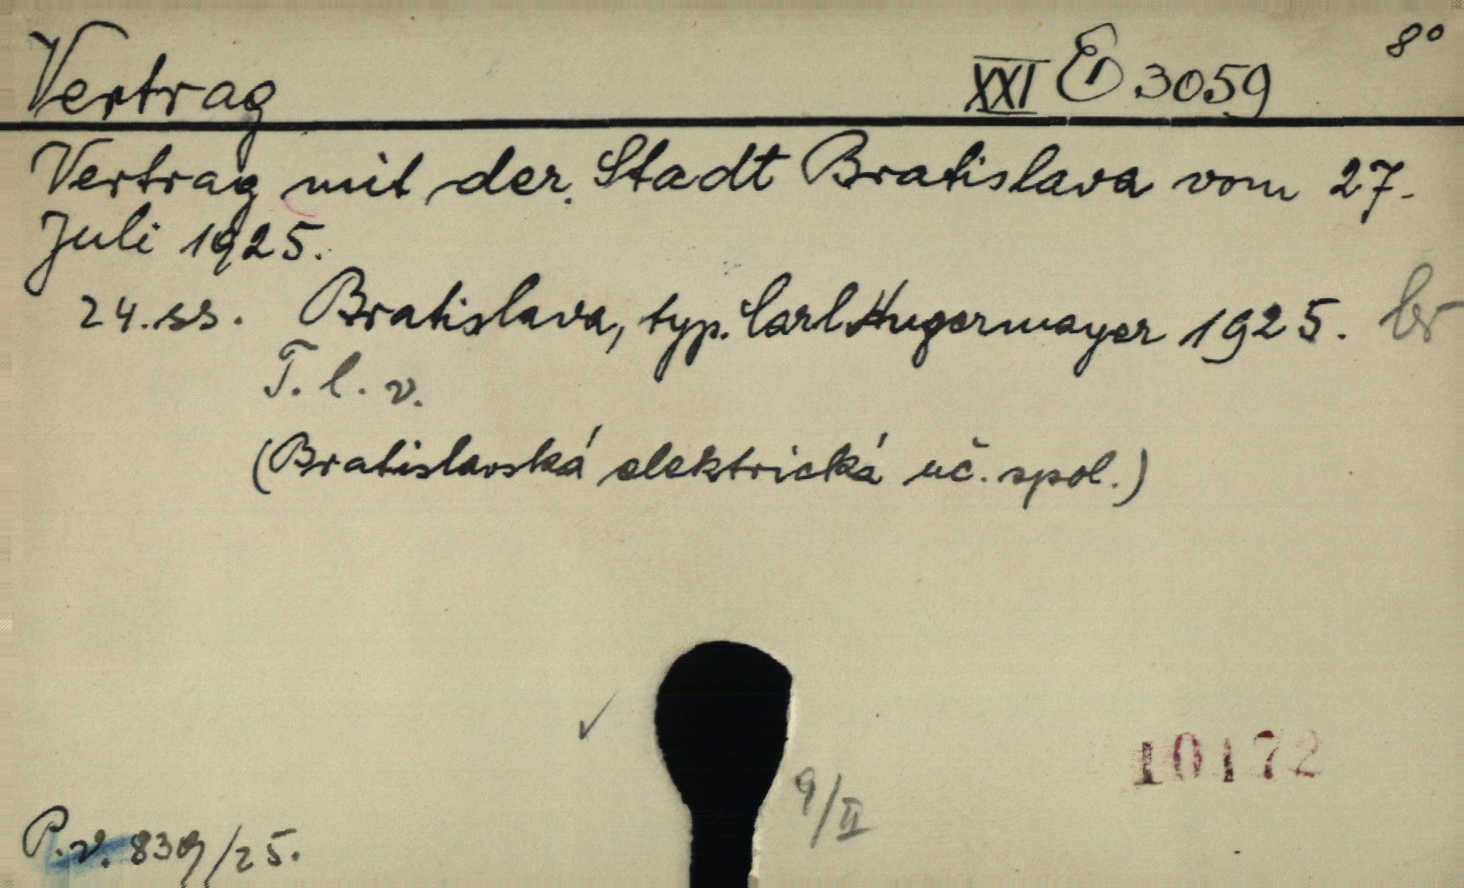 Vertrag XXI E 3059 8°
Vertrag mit der Stadt Bratislava vom 27.
Juli 1925.
24.ss. Bratislava, typ. Carl Angermayer 1925. br
T. l. v.
(Bratislavská elektrická uč. spol.)
10172
9/II
P.v. 839/25.